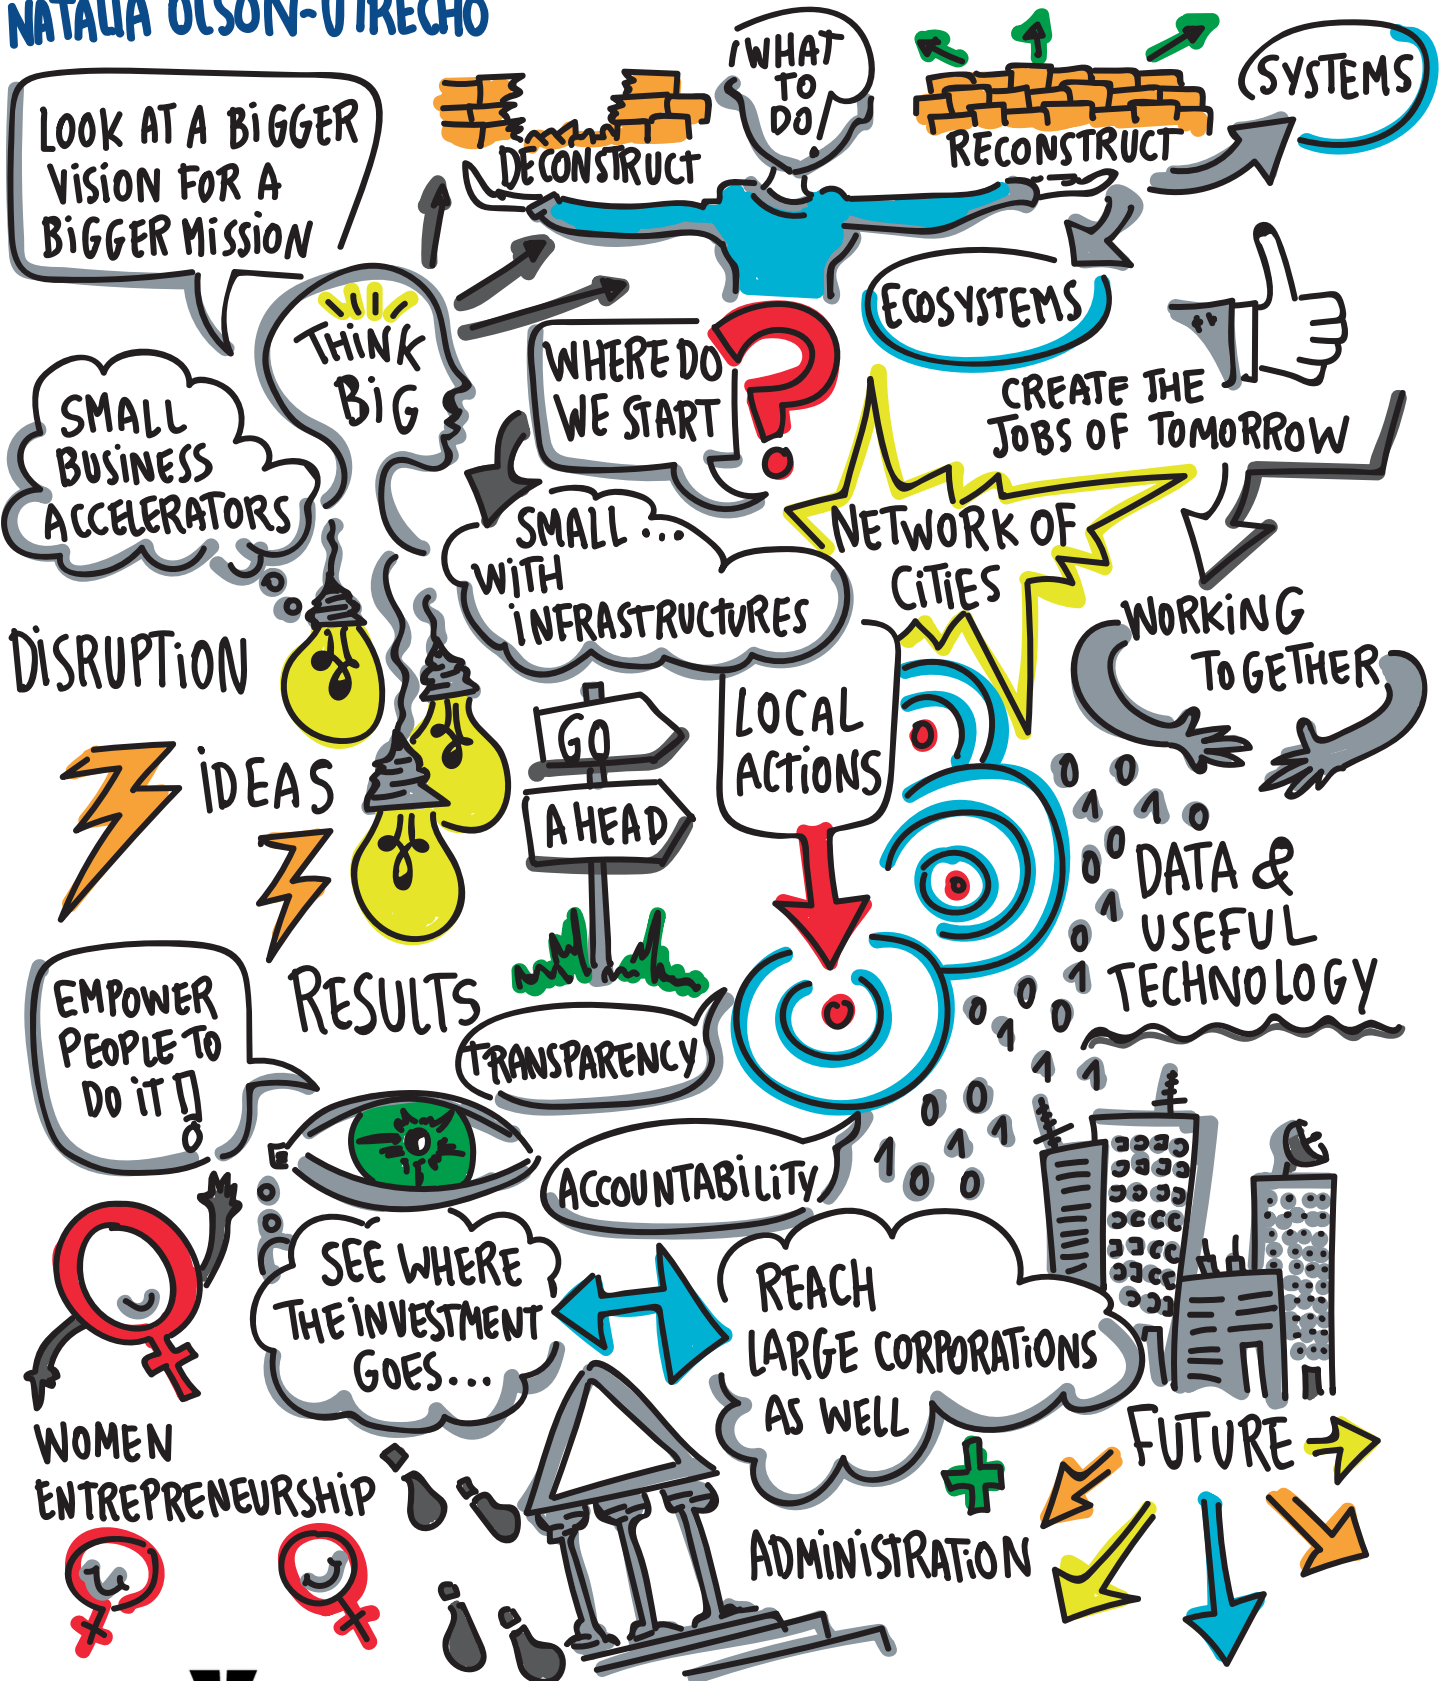 NATALIA OLSON-URTECHO
LOOK AT A BIGGER
VISION FOR A
BIGGER MISSION
THINK
BIG
SMALL
BUSINESS
ACCELERATORS
DECONSTRUCT
WHAT
TO
DO
RECONSTRUCT
SYSTEMS
ECOSYSTEMS
WHERE DO
WE START
?
CREATE THE
JOBS OF TOMORROW
SMALL...
WITH
INFRASTRUCTURES
NETWORK OF
CITIES
WORKING
TOGETHER
DISRUPTION
IDEAS
RESULTS
GO
AHEAD
LOCAL
ACTIONS
DATA &
USEFUL
TECHNOLOGY
EMPOWER
PEOPLE TO
DO IT !
TRANSPARENCY
ACCOUNTABILITY
SEE WHERE
THE INVESTMENT
GOES...
REACH
LARGE CORPORATIONS
AS WELL
WOMEN
ENTREPRENEURSHIP
ADMINISTRATION
FUTURE